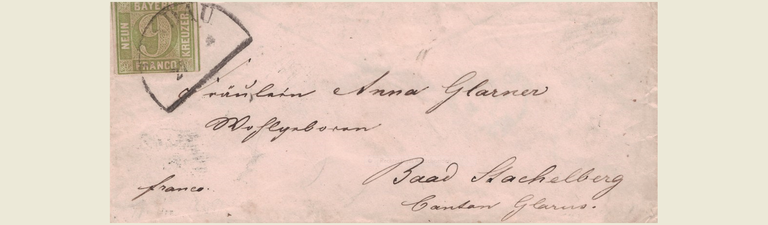 BAYERN
NEUN
9
KREUZER
FRANCO
Fräulein Anna Glarner
Wohlgeboren
Baad Stachelberg
franco.
Canton Glarus.